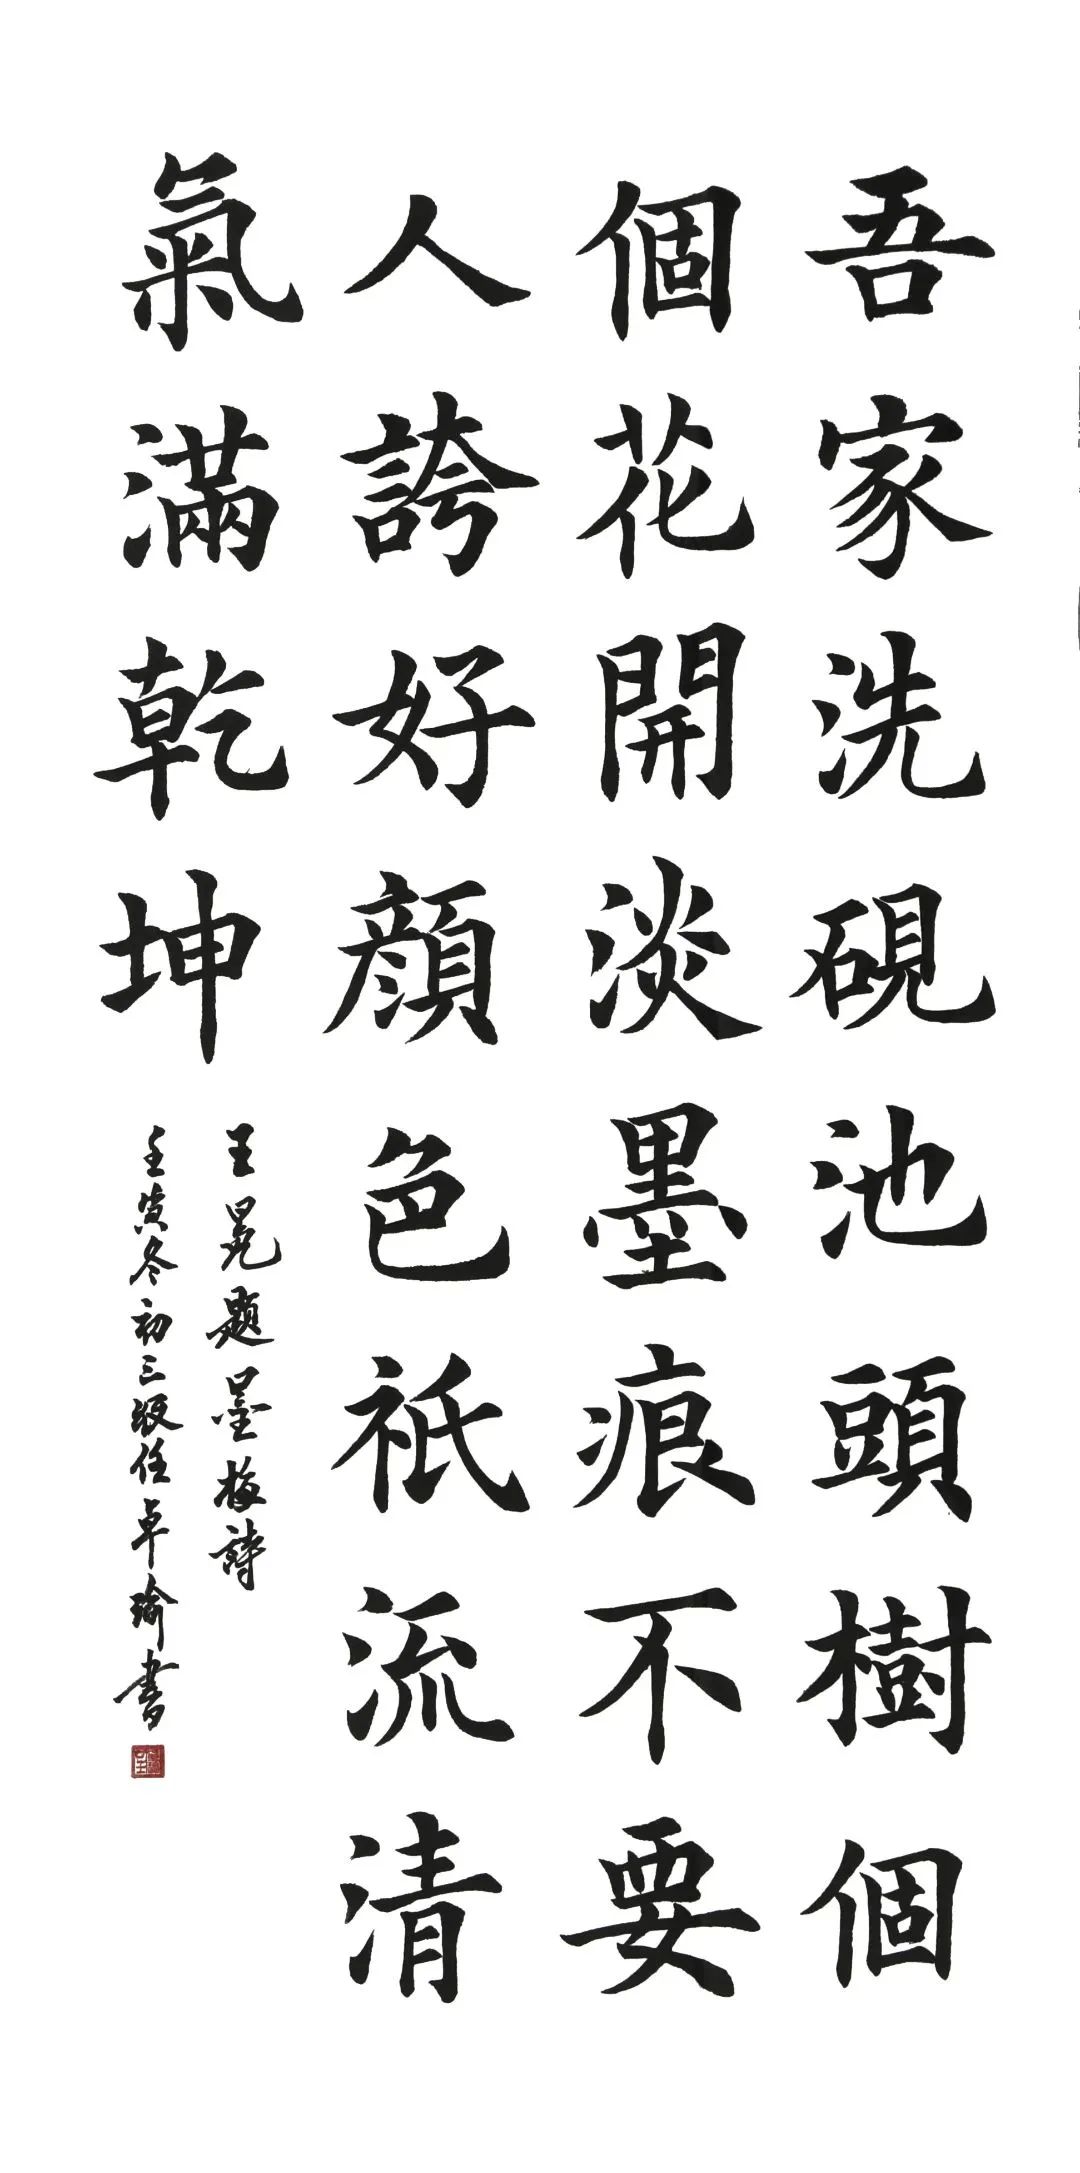 吾家洗硯池頭樹個
個花開淡墨痕不要
人誇好顔色祇流清
氣滿乾坤
王冕題墨梅詩
壬寅冬初三級任卓瑜書